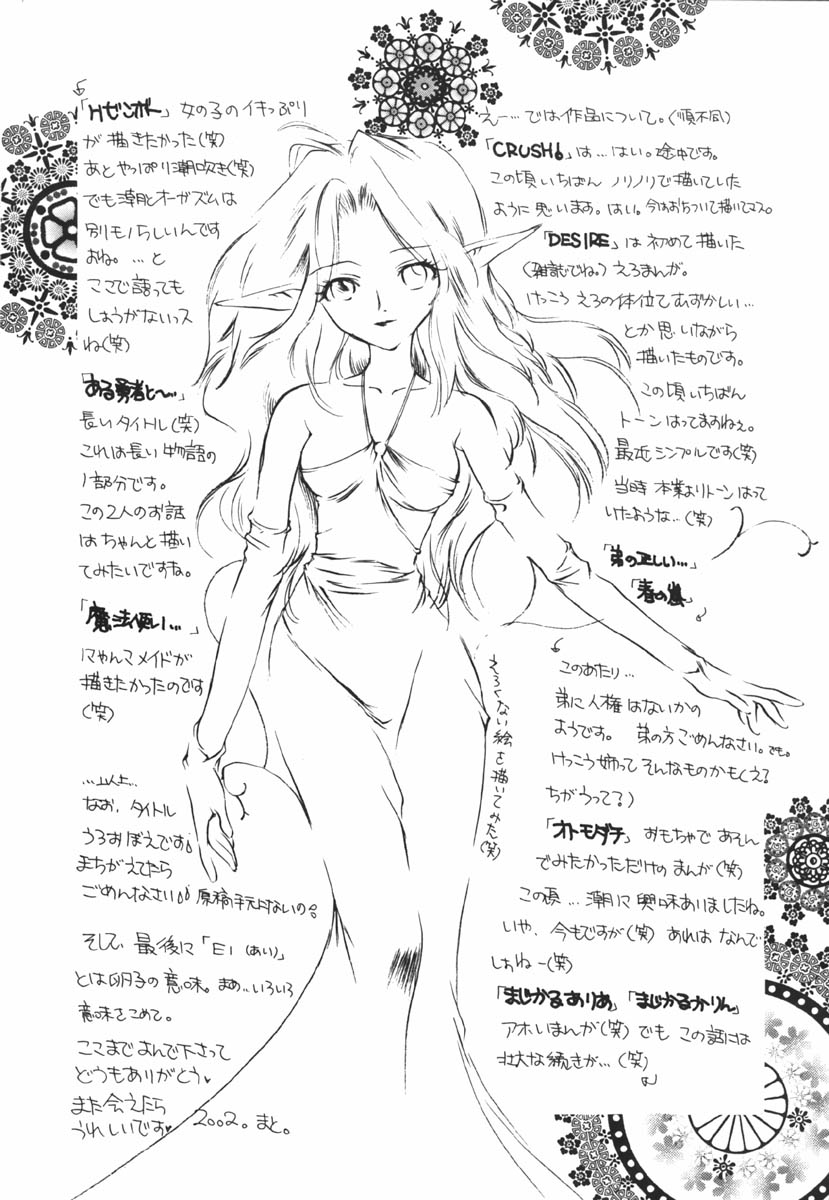 えー…では作品について。(順不同)
「CRUSH!」は…はい。途中です。
この頃いちばん ノリノリで描いていた
ように思います。はい。今はおちついて描いてマス。
「DESIRE」は 初めて 描いた
(雑誌でね。) えろまんが。
けっこう えろの体位てむずかしい…
とか思いながら
描いたものです。
この頃いちばん
トーンはってますねぇ。
最近シンプルです(笑)
当時 本業よりトーンはって
いたような…(笑)
「弟の正しい…」
「春の嵐」
このあたり…
弟に人権はないかの
ようです。 弟の方ごめんなさい。でも。
けっこう姉って そんなものかもしくえ?
ちがうって?)
「オトモダチ」 おもちゃで あそん
でみたかっただけの まんが(笑)
この頃…潮に興味ありましたね。
いや、今もですが(笑) あれは なんで
しょねー(笑)
「まじかるありあ」「まじかるかりん」
アホいまんが(笑) でも この話には
壮大な続きが…(笑)
「Hゼンポー」 女の子のイキっぷり
が描きたかった(笑)
あとやっぱり潮吹き(笑)
でも潮とオーガズムは
別モノらしいんです
よね。…と
ここで語っても
しょうがないっス
ね(笑)
「ある勇者と〜…」
長いタイトル(笑)
これは長い物語の
1部分です。
この2人のお話
はちゃんと描い
てみたいですね。
「魔法使い…」
にゃんこメイドが
描きたかったのです
(笑)
…以上…
なお、タイトル
うろおぼえです。
まちがえてたら
ごめんなさい。 原稿手元にないの。
そして 最後に「EI (あい)」
とは卵子の意味。まぁ…いろいろ
意味をこめて。
ここまでよんで下さって
どうもありがとう♥
また会えたら
うれしいです♥ 2002. まと。
えろくない絵を描いてみた(笑)